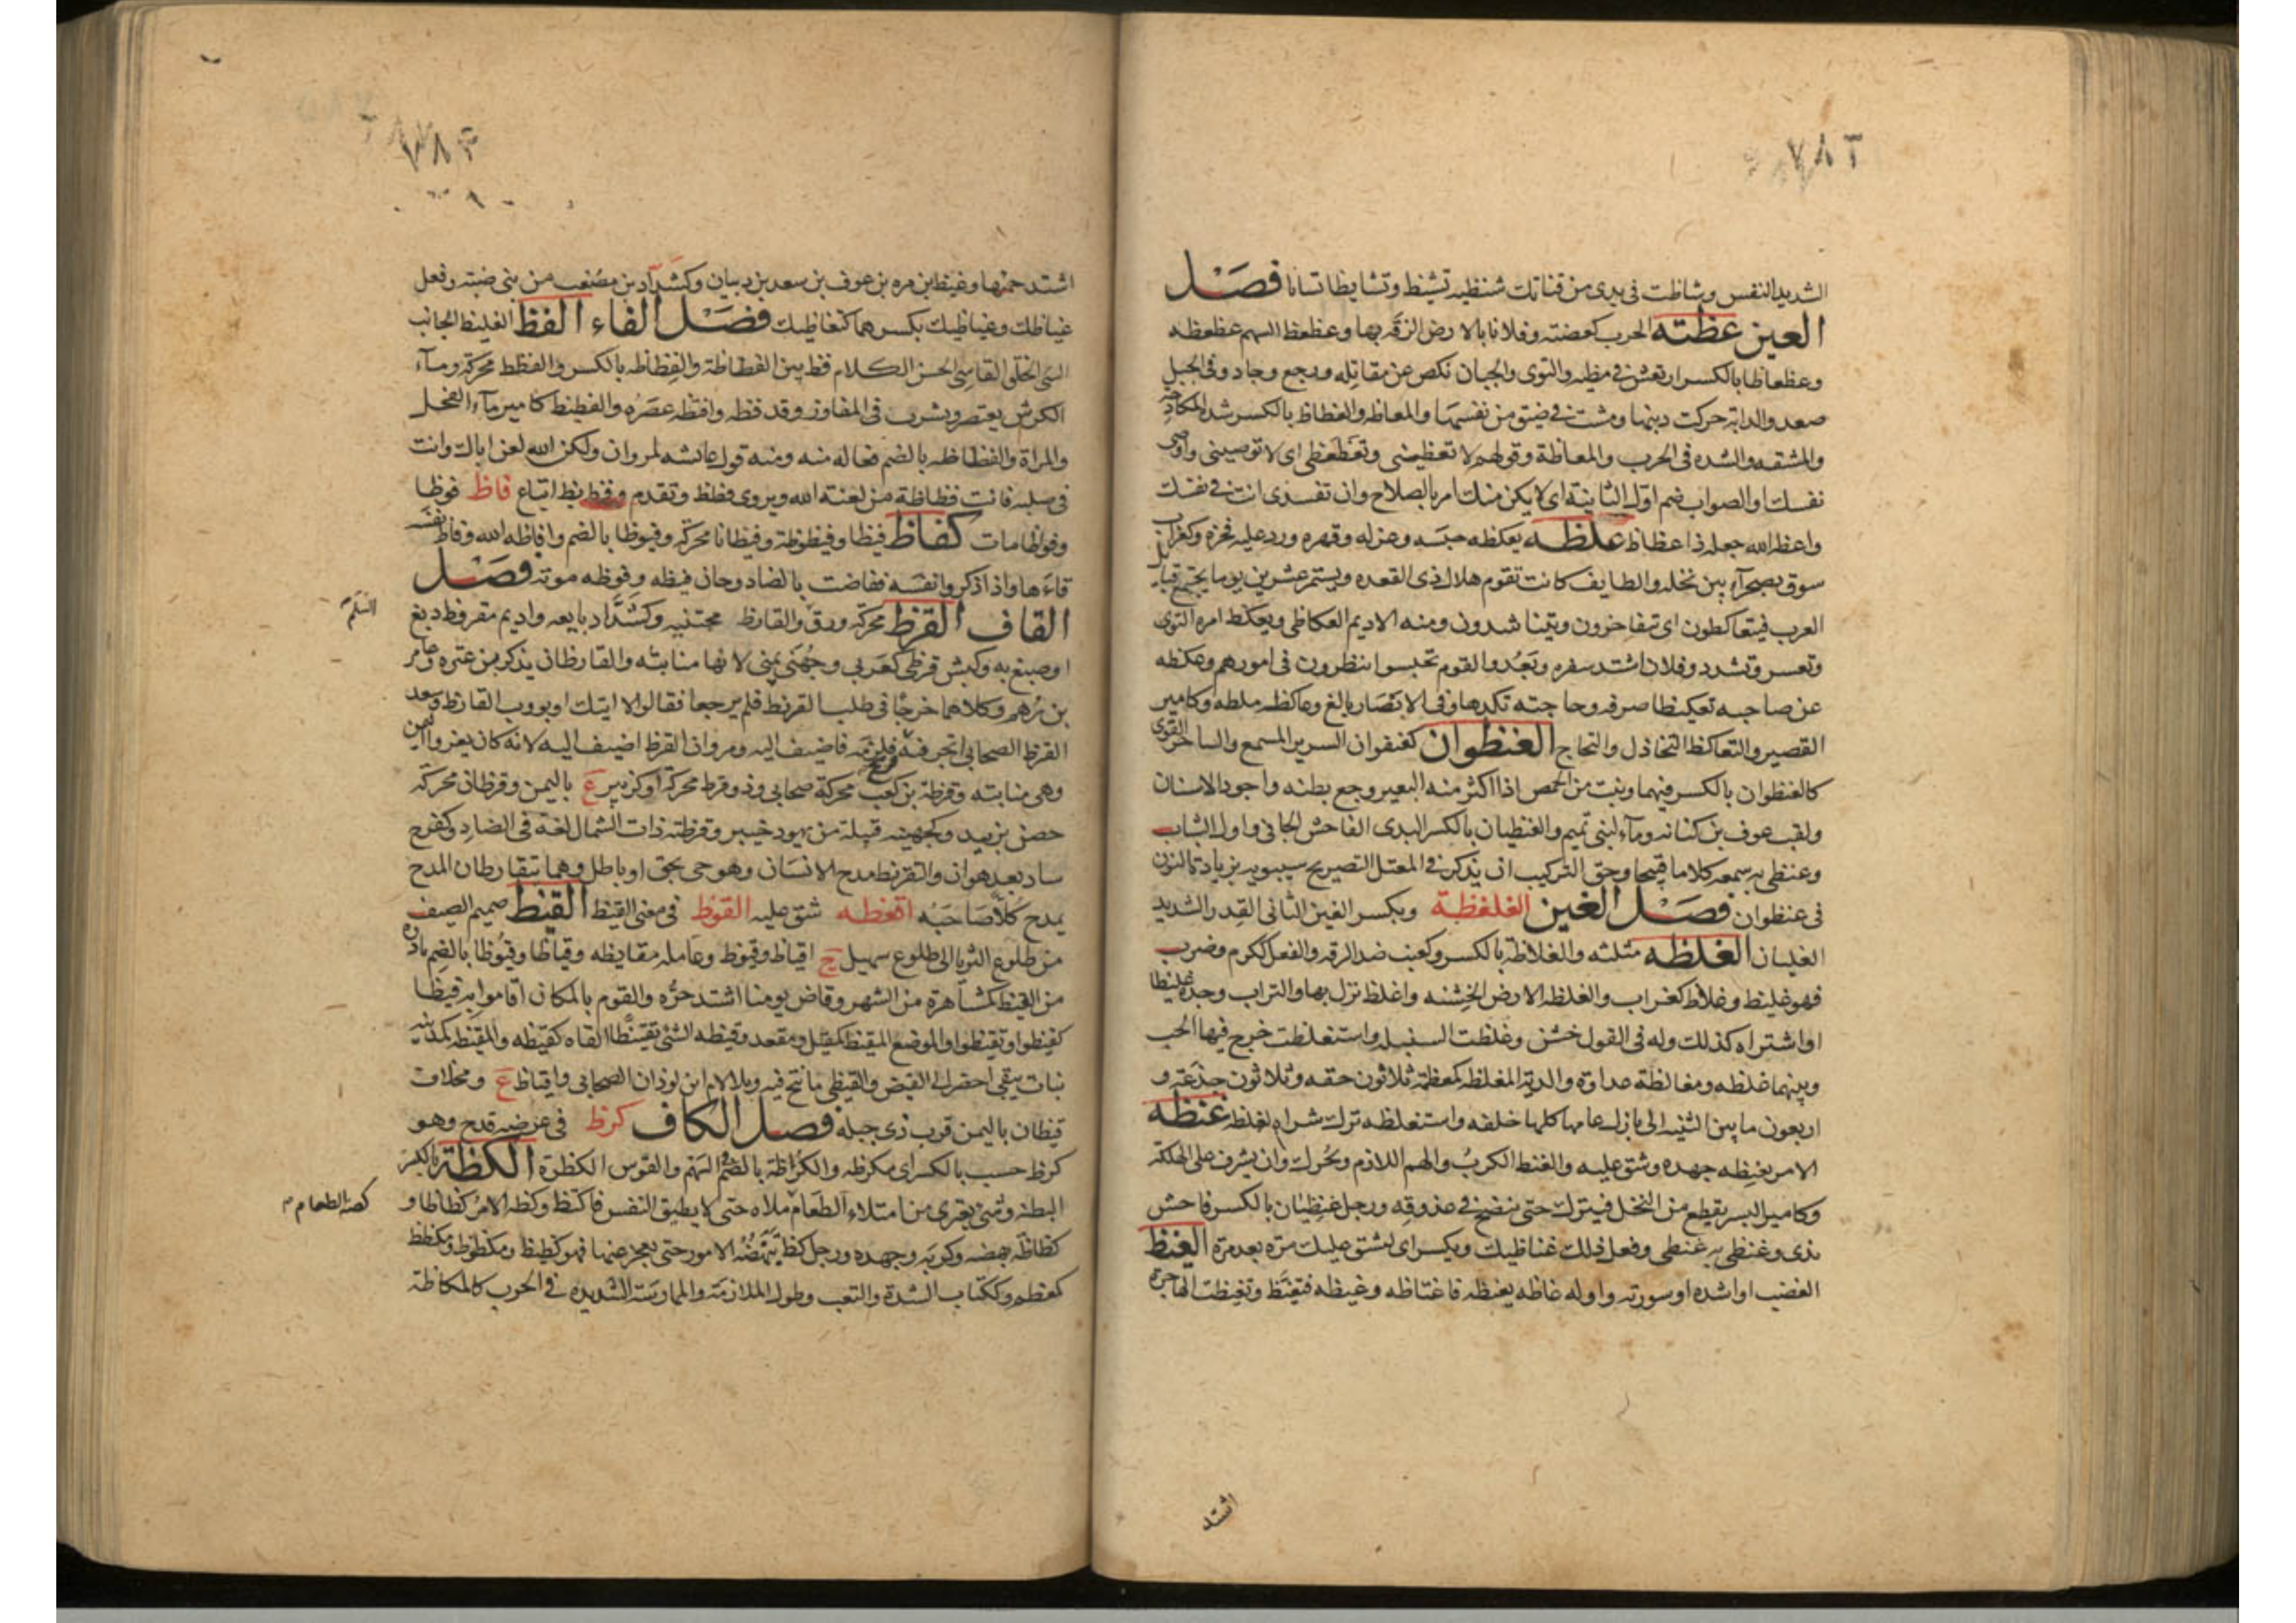 ٧٨٢
الشديد النفس وشاظت في يدي من قناتك شنظيه تشيظ وتشايظا تسابا فصل
العين عظته الحرب كعضته وفلانا بالارض الزقه بها وعظعظ السهم عظعظه
وعظعاظا بالكسر ارتعش في مضيه والتوى والجبان نكص عن مقاتله ورجع وحاد وفي الجبل
صعد والدابة حركت ذنبها ومشت في ضيق من نفسها والمعاظه والعظاظ بالكسر شده المكادحه
والمشقه والشده في الحرب والمعاظة وقولهم لا تعظيني وتعظعظي اى لا توصيني واوصى
نفسك او الصواب ضم اول الثانية اى لا يكن منك امر بالصلاح وان تفسدى انت في نفسك
واعظه الله جعله ذا عظاظ عكظه يعكظه حبسه وعركه وقهره ورد عليه فخره وكغراب
سوق بصحرآء بين نخله والطايف كانت تقوم هلال ذى القعده ويستمر عشرين يوما يجتمع قبايل
العرب فيتعاكظون اى يتفاخرون ويتناشدون ومنه الاديم العكاظى ويعكظ امره التوى
وتعسر وتشدد وفلان اشتد سفره وبعد والقوم تحبسوا ينظرون في امورهم وعكظه
عن صاحبه تعكيظا صرفه وحاجته نكدها وفي الانتصار بالغ وعاكظه مطله وكامير
القصير والتعاكظ التجادل والتحاج العنظوان كعنفوان الشرير المسمع والساخر المغوى
كالعنظوان بالكسر فيهما ونبت من الحمض اذا اكثر منه البعير وجع بطنه واجود الاسنان
ولقب عوف بن كنانه ومآء لبنى تميم والعنظيان بالكسر البذى الفاحش الجافي واول الشباب
وعنظى به سمعه كلاما قبيحا وحق التركيب ان يذكر في المعتل التصريح سيبويه بزيادة النون
في عنظوان فصل الغين الغلغظة وبكسر الغين الثانى القدر الشديد
الغليان الغلظه مثلثه والغلاظة بالكسر وكعنب ضد الرقه والفعل ككرم وضرب
فهو غليظ وغلاظ كغراب والغلظ الارض الخشنه واغلظ نزل بها والثوب وجده غليظا
او اشتراه كذلك وله في القول خشن وغلظت السنبله واستغلظت خرج فيها الحب
وبينهما غلظه ومغالظة عداوة والدية المغلظه كمعظمه ثلاثون حقه وثلاثون جذعه و
اربعون ما بين الثنيه الى بازل عامها كلها خلفه واستغلظه ترك شراه لغلظه غنظه
الامر يغنظه جهده وشق عليه والغنظ الكرب والهم اللازم ويحرك وان يشرف على الهلكة
وكامير البسر يقطع من النخل فيترك حتى ينضج في عذوقه ورجل غنظيان بالكسر فاحش
بذى وغنظى به غنظى وفعل ذلك غناظيك وبكسر اى ليشق عليك مرة بعد مرة الغيظ
الغضب او اشده او سورته واوله غاظه يغيظه فاغتاظه وغيظه فتغيظ وتغيظت الهاجرة
اشتد
٧٨٣
اشتد حميها وغيظ ابن مره بن عوف بن سعد بن ذبيان وكشداد بن مصعب من بنى ضبه وفعل
غياظك وغياظيك بكسرهما كغناظيك فصل الفاء الفظ الغليظ الجانب
السئ الخلق القاسى الخشن الكلام فظ بين الفظاظة والفظاظه بالكسر والفظظ محركه ومآء
الكرش يعتصر ويشرب في المفاوز وقد فظه وافتظه عصره والفظيظ كامير مآء الفحل
والمراة والفظاظه بالضم فعاله منه ومنه قول عائشه لمروان ولكن الله لعن اباك وانت
في صلبه فانت فظاظة من لعنة الله ويروى فظظ وتقدم وفظ بظ اتباع فاظ فوظا
وفواظا مات كفاظ فيظا وفيظوظة وفيظانا محركه وفيوظا بالضم وافاظه الله وفاظ نفسه
قاءها واذا ذكروا نفسه ففاضت بالضاد وحان فيظه وفوظه موته فصل
القاف القرظ محركه ورق والقارظ مجتنيه وكشداد بايعه واديم مقروظ دبغ
السلم
او صبغ به وكبش قرظى كعربى وجهنى يمنى لانها منابته والقارظان يذكر بن عنزه وعامر
بن رهم وكلاهما خرجا في طلب القرظ فلم يرجعا فقالوا لا اتيك او يووب القارظ وسعد
القرظ الصحابى اتجر فيه فربح فلزمه فاضيف اليه ومروان القرظ اضيف اليه لانه كان يغزو اليمن
وهى منابته وقرظة بن كعب محركة صحابى وذو قرظ محركه او كزبير ع باليمن وقرظان محركه
حصن بزبيد وكجهينه قبيلة من يهود خيبر وقرظته ذات الشمال لغة في الضاد وكفرح
ساد بعد هوان والتقريظ مدح الانسان وهو حى بحق او باطل وهما يتقارظان المدح
يمدح كلا صاحبه اقعظه شق عليه القوظ في معنى القيظ القيظ صميم الصيف
من طلوع الثريا الى طلوع سهيل ج اقياظ وقيوظ وعامله مقايظه وقياظا وقيوظا بالضم نادرة
من القيظ كمشاهرة من الشهر وقاض يومنا اشتد حره والقوم بالمكان اقاموا به قيظا
كقيظوا وتقيظوا والموضع المقيظ كمقيل ومقعد وقيظه الشئ تقييظا القاه كقيظه والمقيظه كمدينه
نبات يبقى اخضر الى القيض والقيظى ما نتج فيه وبلا لام ابن لوذان الصحابى واقياظ ع ومخلاف
قيظان باليمن قرب ذى جبله فصل الكاف كرظ في عرضه قدح وهو
كرظ حسب بالكسر اى مكرظه والكراظة بالضم الهم والقوس الكظرة الكظة بالكسر
البطنه وشئ يعترى من امتلاء الطعام ملاه حتى لا يطيق النفس فاكتظ وكظه الامر كظاظا و
كصه الطعام
كظاظة بهضه وكربه وجهده ورجل كظ تبهضه الامور حتى يعجز عنها فهو كظيظ ومكظوظ ومكظظ
كمعظم وككتاب الشدة والتعب وطول الملازمه والممارسته الشديده في الحرب كالمكاظة